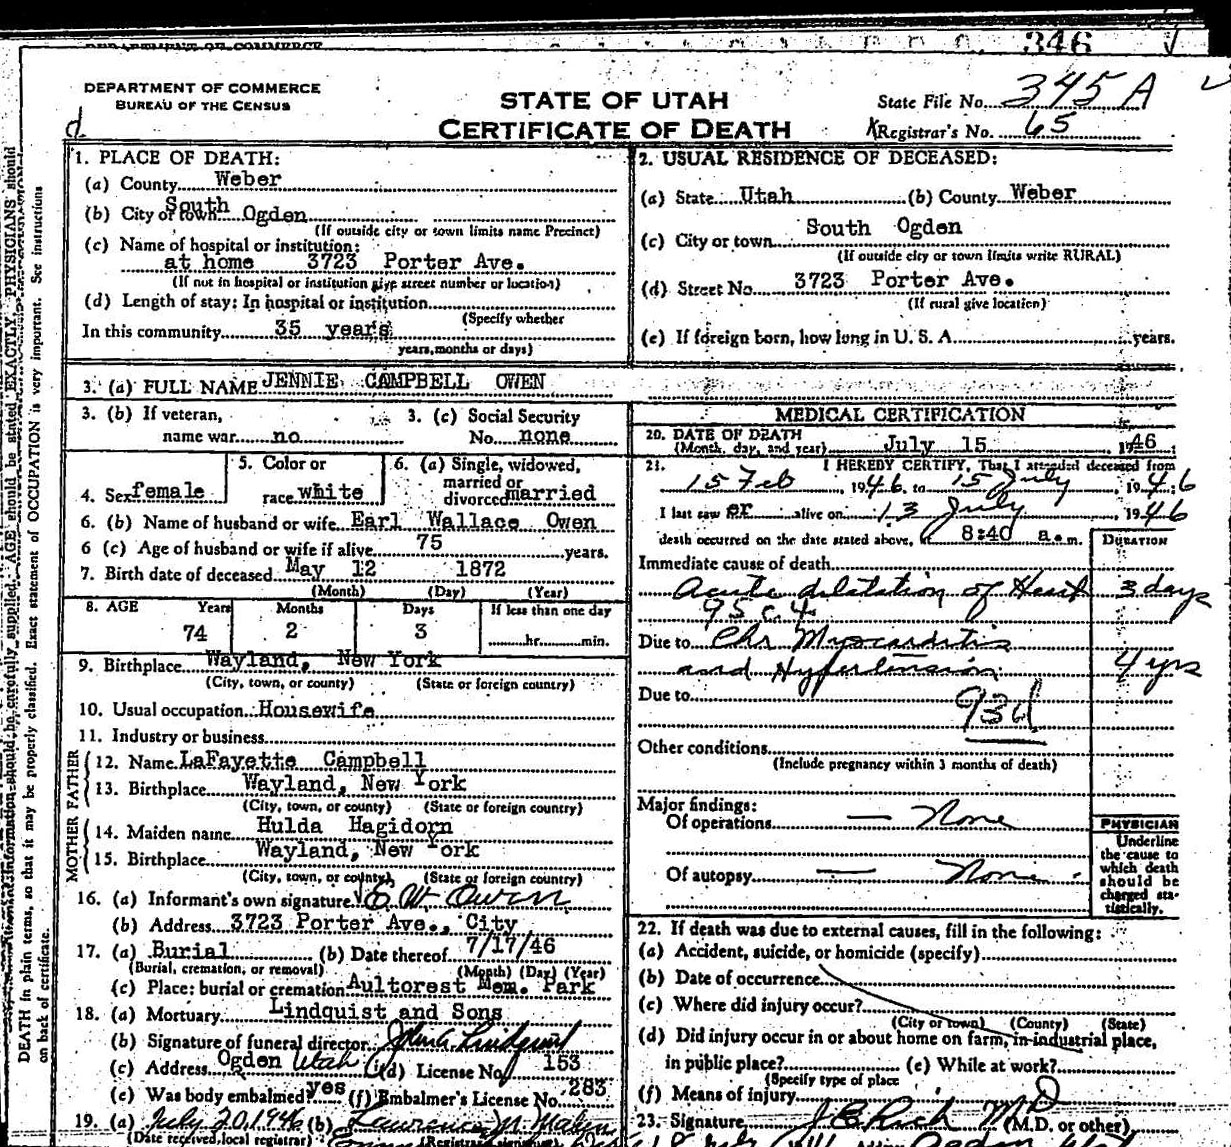 346
DEPARTMENT OF COMMERCE
BUREAU OF THE CENSUS
STATE OF UTAH
CERTIFICATE OF DEATH
State File No. 345 A
Registrar's No. 65
d
AGE should be stated EXACTLY. PHYSICIANS should
Exact statement of OCCUPATION is very important. See instructions
DEATH in plain terms, so that it may be properly classified.
on back of certificate.
1. PLACE OF DEATH:
(a) County Weber
South
(b) City or town Ogden
(If outside city or town limits name Precinct)
(c) Name of hospital or institution:
at home 3723 Porter Ave.
(If not in hospital or institution give street number or location)
(d) Length of stay: In hospital or institution
(Specify whether
In this community 35 years
years, months or days)
2. USUAL RESIDENCE OF DECEASED:
(a) State Utah (b) County Weber
(c) City or town South Ogden
(If outside city or town limits write RURAL)
(d) Street No. 3723 Porter Ave.
(If rural give location)
(e) If foreign born, how long in U. S. A. years.
3. (a) FULL NAME JENNIE CAMPBELL OWEN
3. (b) If veteran,
name war no
3. (c) Social Security
No. none
4. Sex female
5. Color or
race white
6. (a) Single, widowed,
married or
divorced married
6. (b) Name of husband or wife Earl Wallace Owen
6 (c) Age of husband or wife if alive 75 years.
7. Birth date of deceased May 12 1872
(Month) (Day) (Year)
8. AGE Years Months Days If less than one day
74 2 3 hr. min.
9. Birthplace Wayland, New York
(City, town, or county) (State or foreign country)
10. Usual occupation Housewife
11. Industry or business
FATHER
12. Name LaFayette Campbell
13. Birthplace Wayland, New York
(City, town, or county) (State or foreign country)
MOTHER
14. Maiden name Hulda Hagidorn
15. Birthplace Wayland, New York
(City, town, or county) (State or foreign country)
16. (a) Informant's own signature E. W. Owen
(b) Address 3723 Porter Ave., City
17. (a) Burial (b) Date thereof 7/17/46
(Burial, cremation, or removal) (Month) (Day) (Year)
(c) Place: burial or cremation Aultorest Mem. Park
18. (a) Mortuary Lindquist and Sons
(b) Signature of funeral director John A. Lindquist
(c) Address Ogden Utah (d) License No. 153
(e) Was body embalmed? yes (f) Embalmer's License No. 283
19. (a) July 20, 1946 (b) Lawrence M. Malan
(Date received local registrar) (Registrar's signature)
MEDICAL CERTIFICATION
20. DATE OF DEATH
(Month, day, and year) July 15 1946
21. I HEREBY CERTIFY, That I attended deceased from
15 Feb, 1946 to 15 July, 1946
I last saw er alive on 13 July, 1946
death occurred on the date stated above, at 8:40 a.m.
DURATION
Immediate cause of death
Acute dilatation of Heart 3 days
95c.4
Due to Chr Myocarditis
and Hypertension 4 yrs
Due to 93d
Other conditions
(Include pregnancy within 3 months of death)
Major findings:
Of operations — None
Of autopsy — None
PHYSICIAN
Underline
the cause to
which death
should be
charged sta-
tistically.
22. If death was due to external causes, fill in the following:
(a) Accident, suicide, or homicide (specify)
(b) Date of occurrence
(c) Where did injury occur?
(City or town) (County) (State)
(d) Did injury occur in or about home on farm, in industrial place,
in public place? (e) While at work?
(Specify type of place
(f) Means of injury
23. Signature J B Rich M D (M.D. or other)